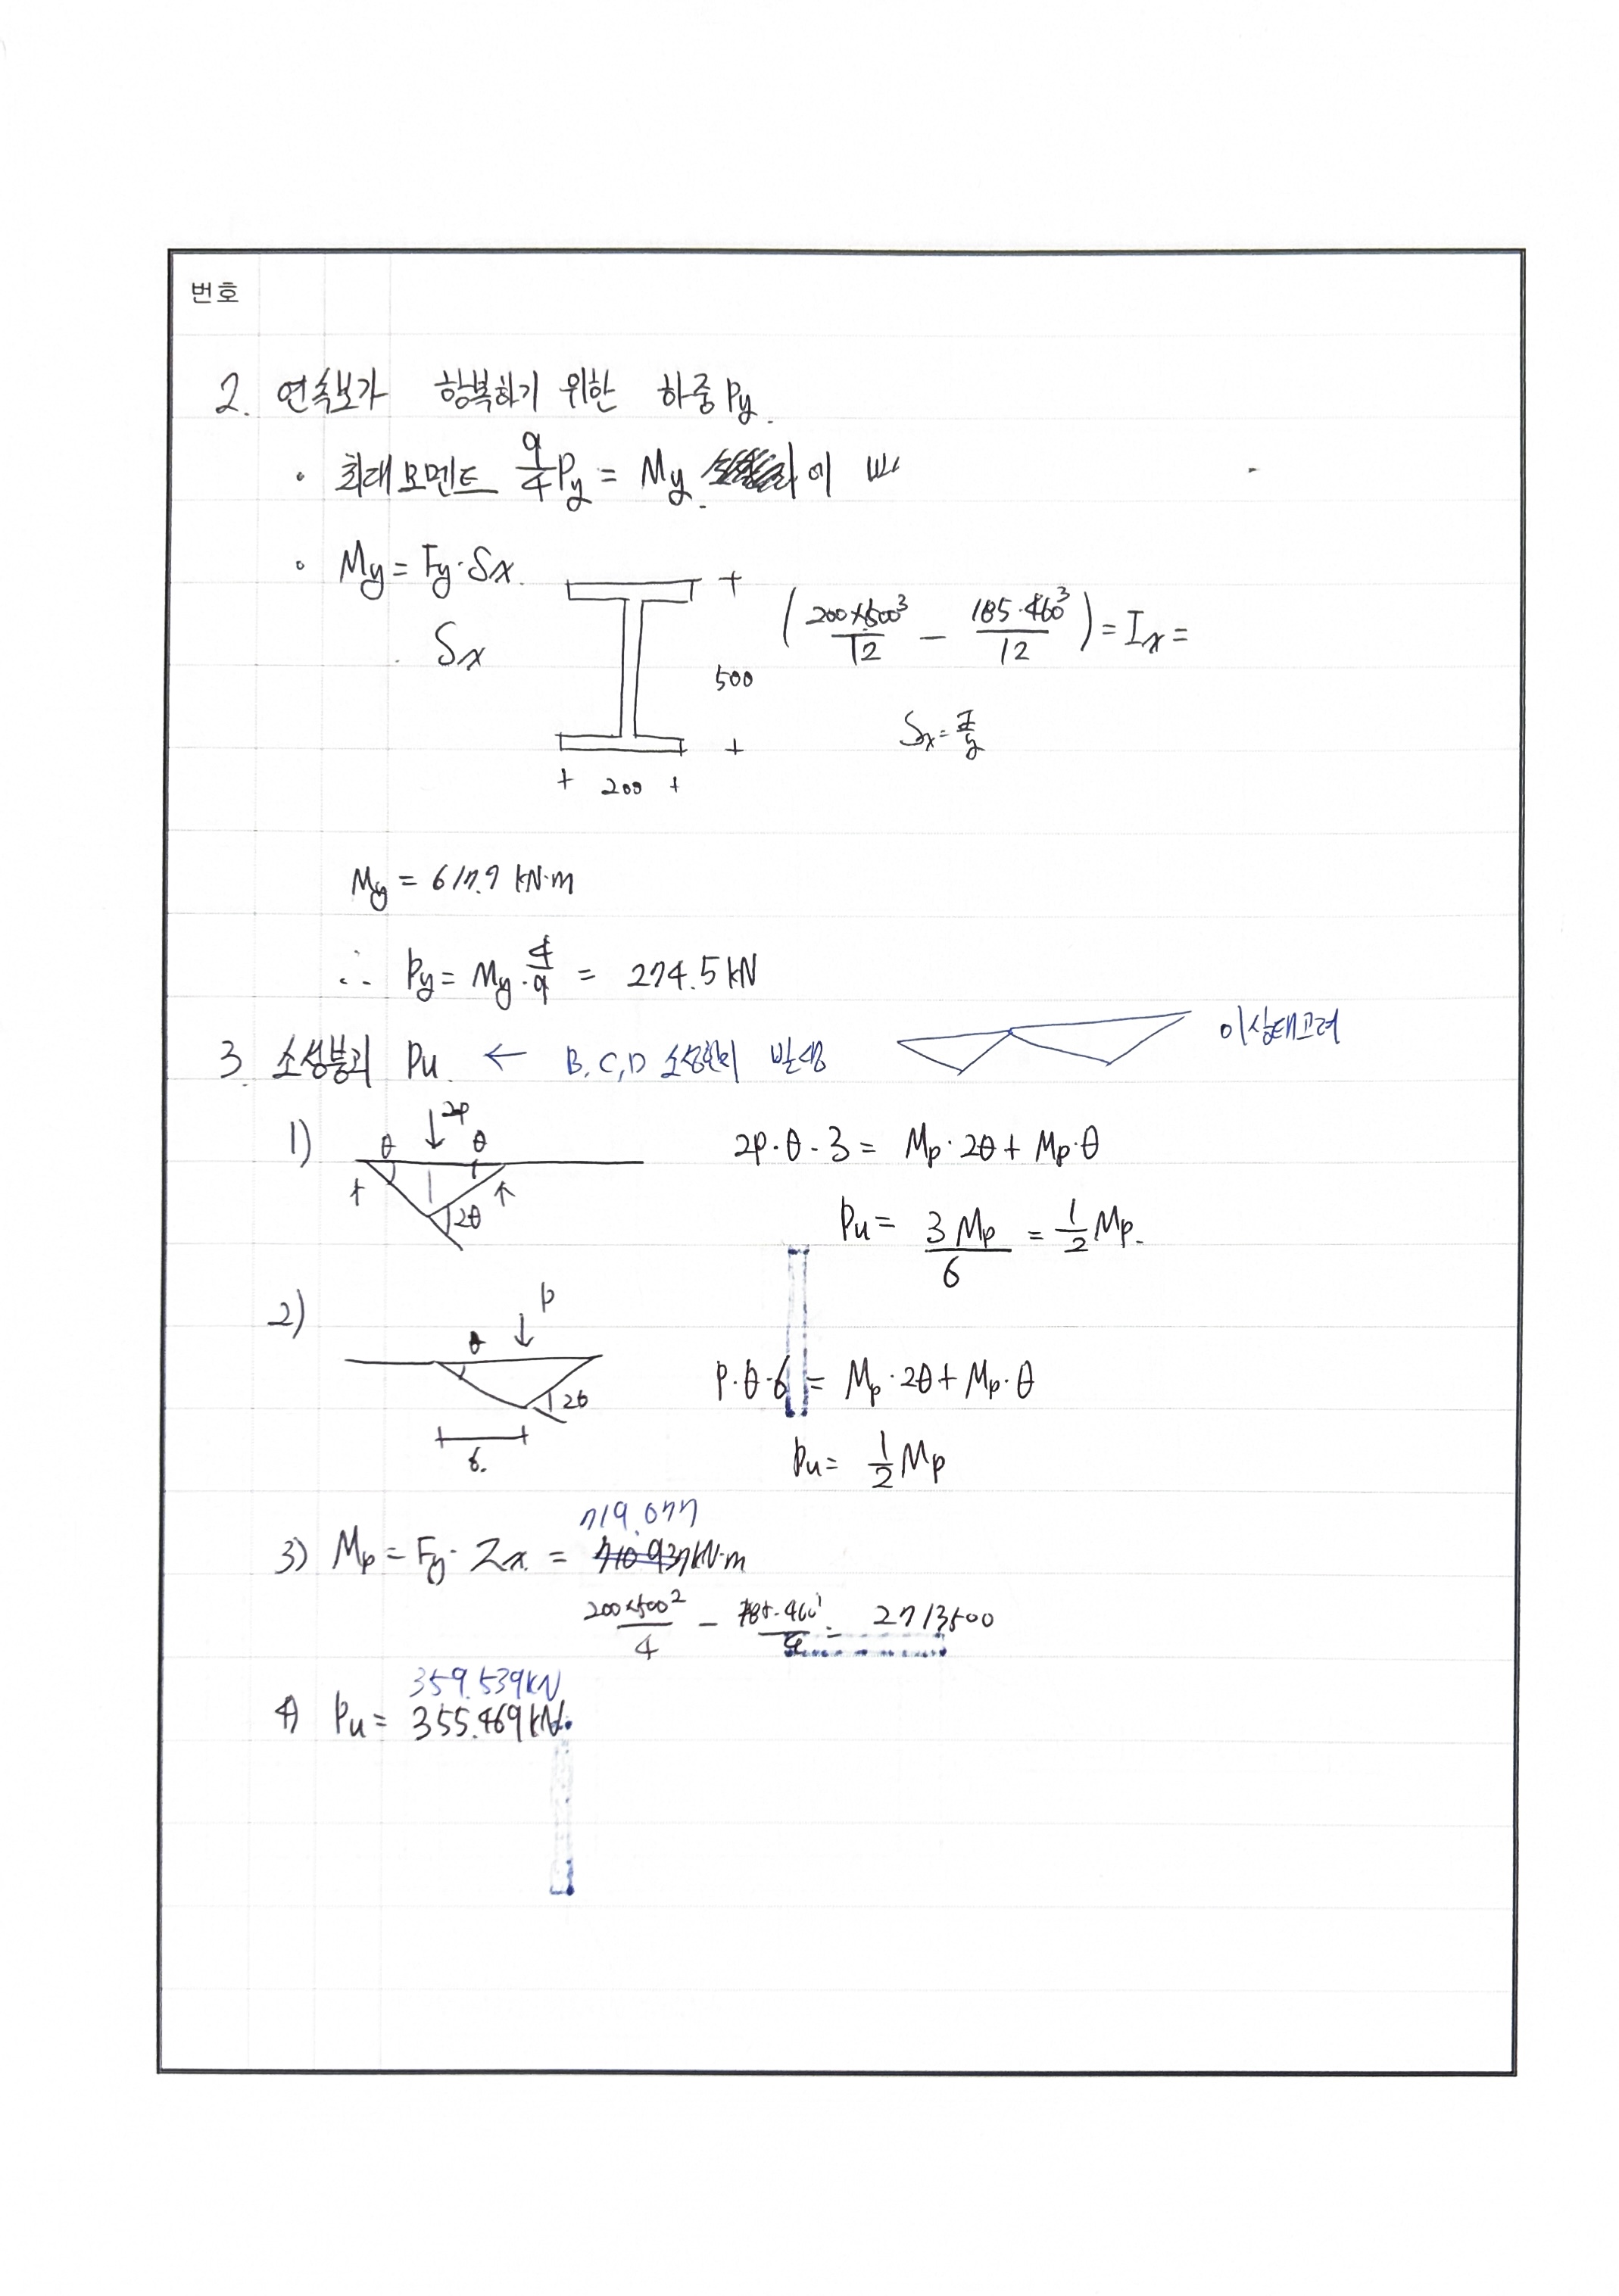 번호
2. 연속보가 항복하기 위한 하중 Py.
• 최대모멘트 9/4 Py = My 이
• My = Fy·Sx.
Sx
(200×500³/12 − 185·460³/12) = Ix =
500
Sx = I/y
+ 200 +
My = 617.7 kN·m
∴ Py = My·4/9 = 274.5 kN
3. 소성붕괴 Pu. ← B, C, D 소성힌지 발생 이상태고려
1) θ 2P θ 2θ
2P·θ·3 = Mp·2θ + Mp·θ
Pu = 3Mp/6 = 1/2 Mp.
2) θ P 2θ 6.
P·θ·6 = Mp·2θ + Mp·θ
Pu = 1/2 Mp
719.077
3) Mp = Fy·Zx = kN·m
200×500²/4 − 185·460²/4 = 2713500
359.539kN
4) Pu = 355.469kN.